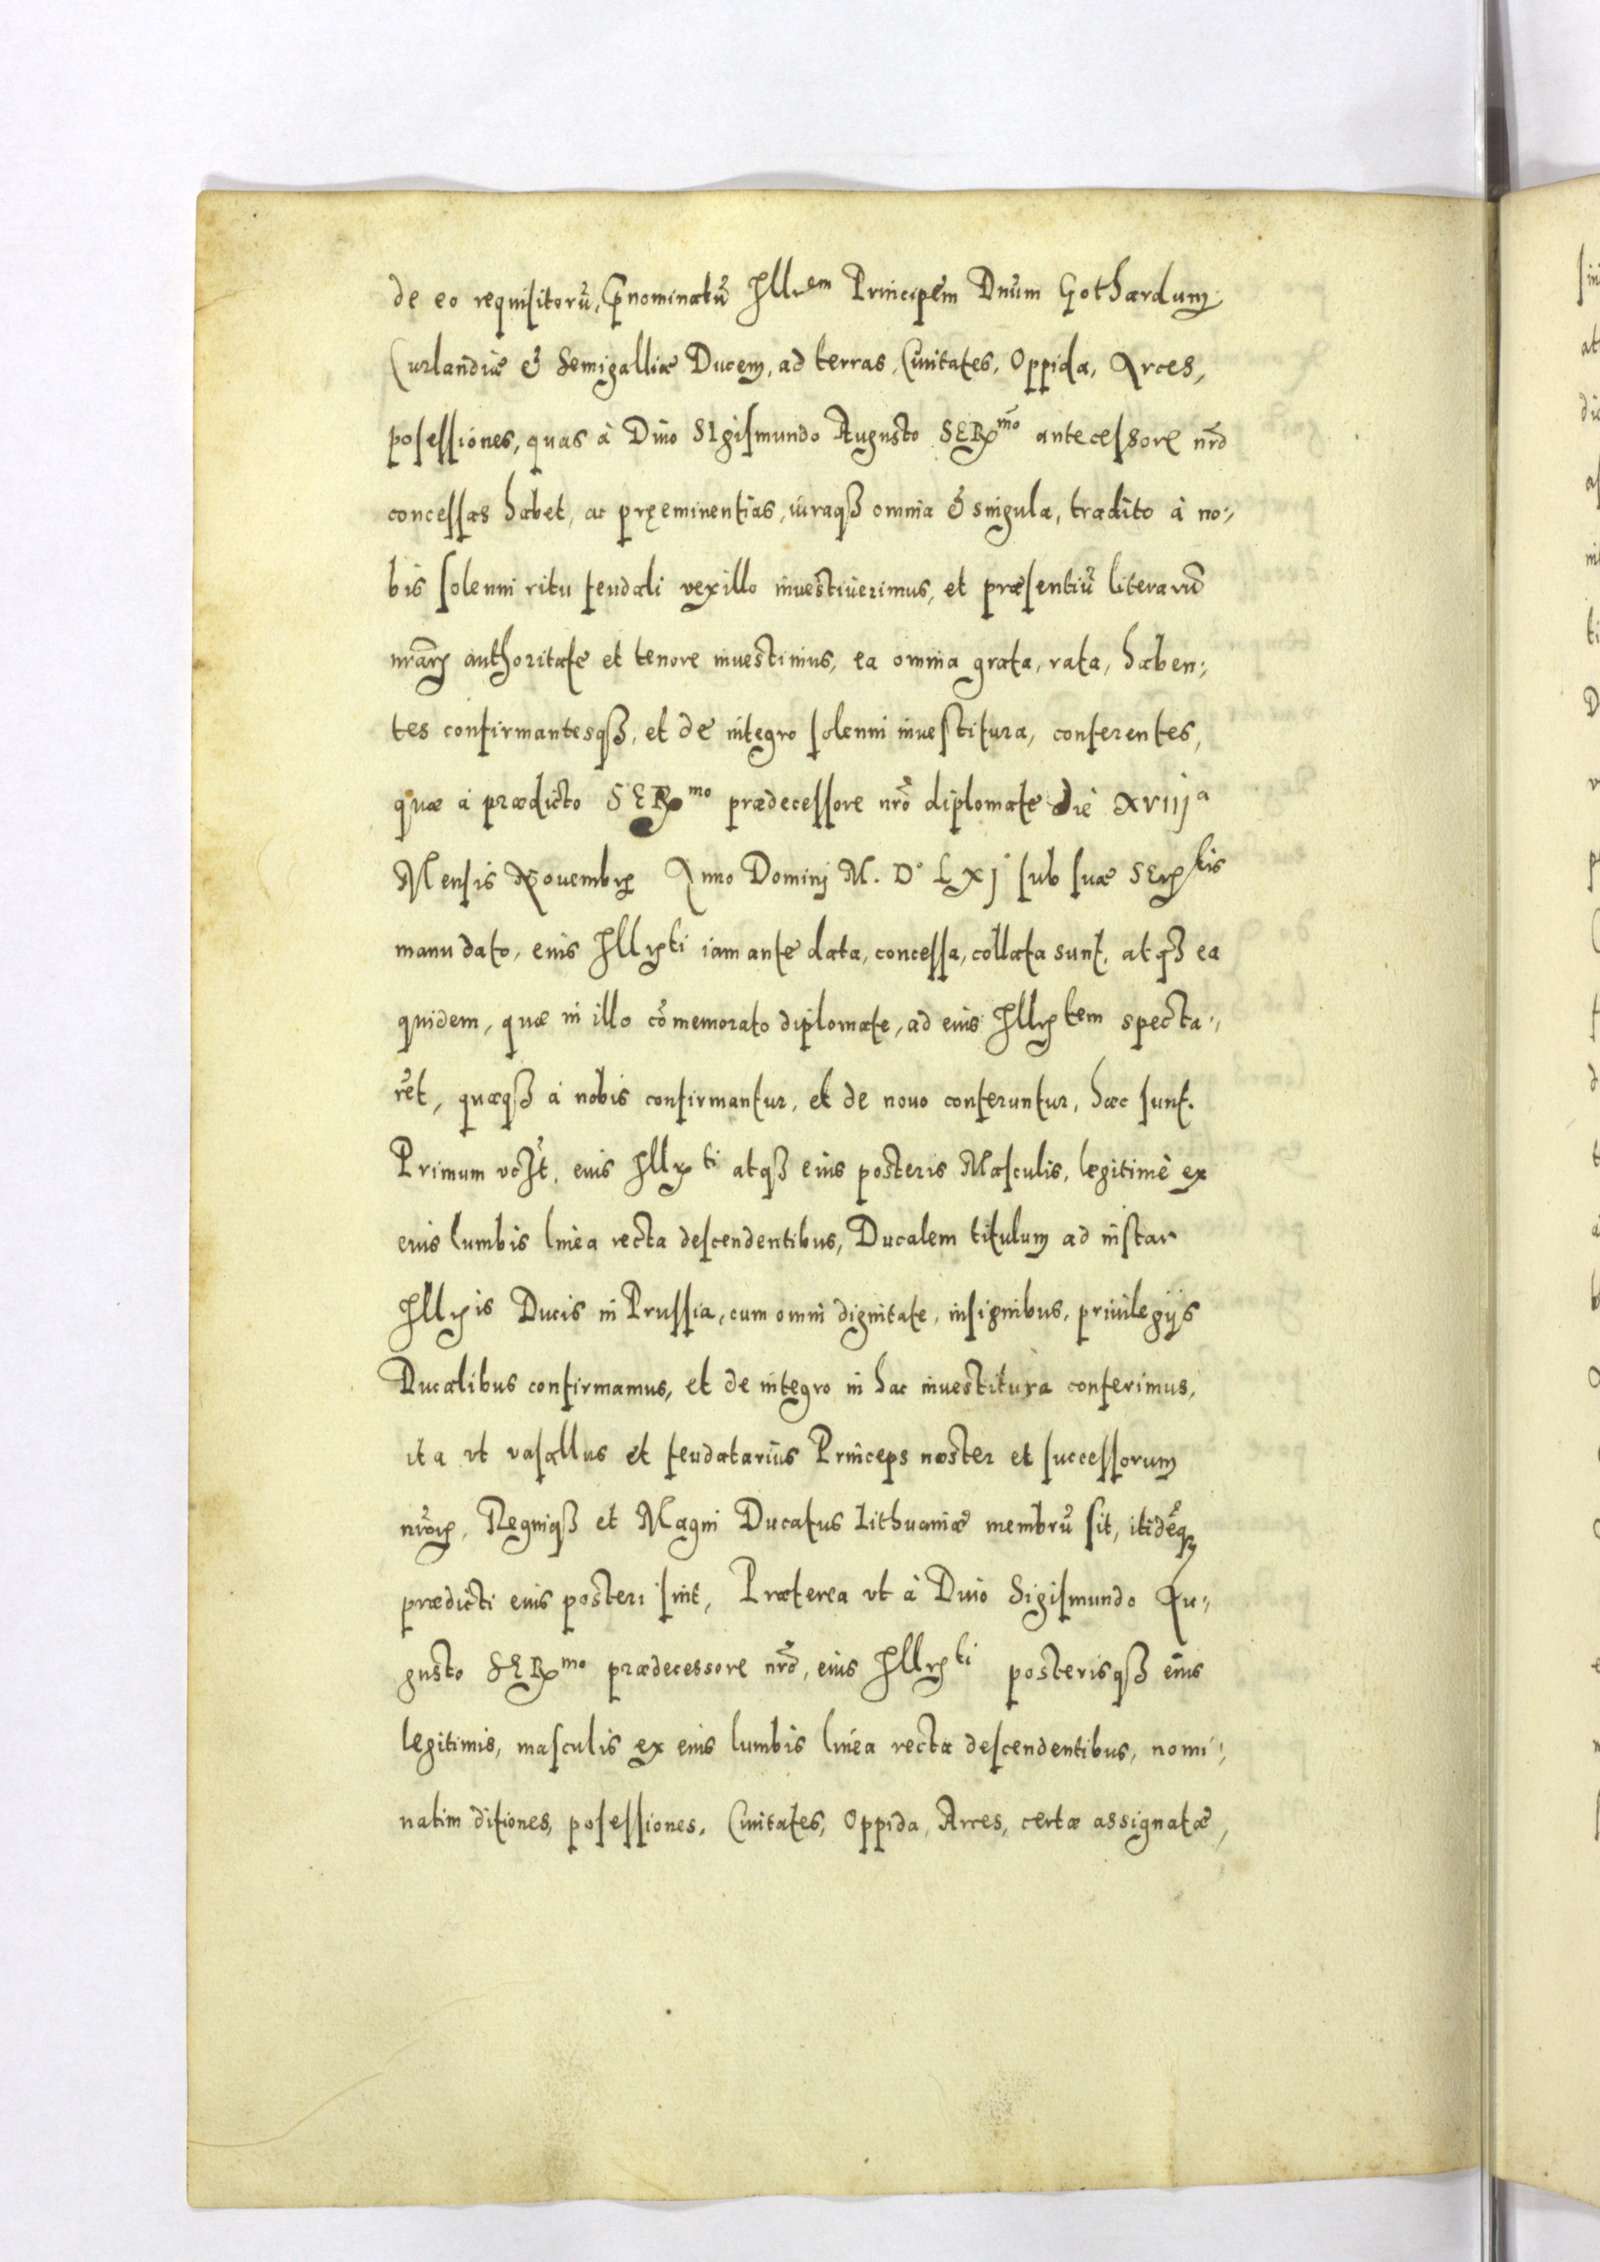 de eo requisitorũ, P̃nominatũ Illrem Principem Dnũm Gothardum
Curlandiæ & Semigalliæ Ducem, ad terras, Ciuitates, Oppida, Arces,
posessiones, quas à Diuo SIgismundo Augusto SERmo antecessore nrõ
concessas habet, ac pręeminentias, iuraqʒ omnia & singula, tradito à no:,
bis solenni ritu feudali vexillo inuestiuerimus, et præsentiũ literarũ
nrãrꝝ authoritate et tenore inuestimus, ea omnia grata, rata, haben:,
tes confirmantesqʒ, et de integro solenni inuestitura, conferentes,
quæ à prædicto SERmo prædecessore nrõ diplomate die XVIIJa
Mensis Nouembrꝭ Anno Domini M. Do LXJ sub suæ SERtis
manu dato, eius Illrti iam ante data, concessa, collata sunt, atqʒ ea
quidem, quæ in illo cõmemorato diplomate, ad eius Illrtem specta:,
rẽt, quæqʒ à nobis confirmantur, et de nouo conferuntur, hæc sunt.
Primum eius Illrti atqʒ eius posteris Masculis, legitimè ex
eius lumbis linea recta descendentibus, Ducalem titulum ad instar
Illris Ducis in Prussia, cum omni dignitate, insignibus, priuilegijs
Ducalibus confirmamus, et de integro in hac inuestitura conferimus,
ita vt vasallus et feudatarius Princeps noster et successorum
nrõrꝝ, Regniqʒ et Magni Ducatus Lithuaniæ membrũ sit, itidẽqʒ
prædicti eius posteri sint, Præterea vt à Diuo Sigismundo Au:,
gusto SERmo prædecessore nrõ, eius Illrti posterisqʒ eius
legitimis, masculis ex eius lumbis linea recta descendentibus, nomi:,
natim ditiones, posessiones, Ciuitates, Oppida, Arces, certæ assignatæ,